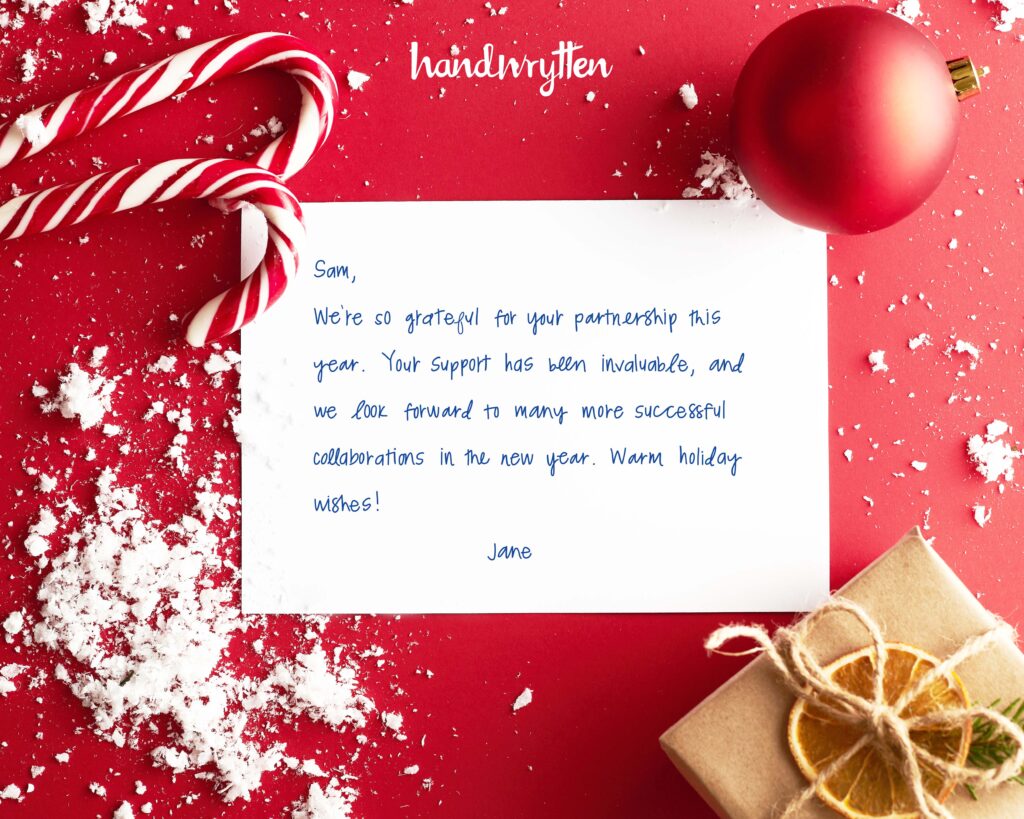 handwrytten
Sam,
We're so grateful for your partnership this
year. Your support has been invaluable, and
we look forward to many more successful
collaborations in the new year. Warm holiday
wishes!
Jane